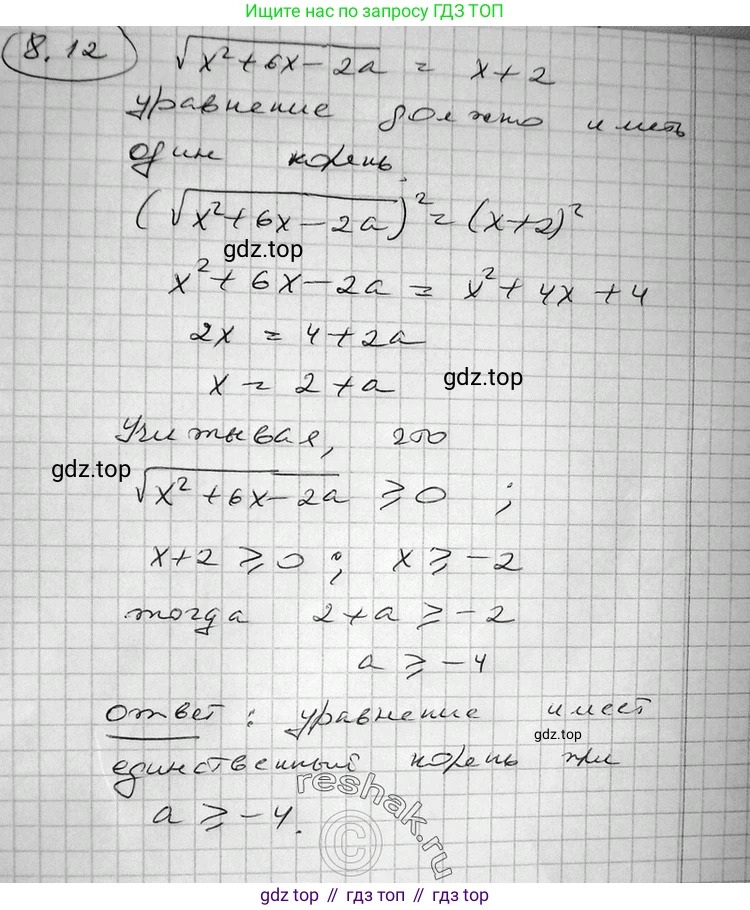 Ищите нас по запросу ГДЗ ТОП
8.12 √(x² + 6x - 2a) = x + 2
уравнение должно иметь
один корень.
(√(x² + 6x - 2a))² = (x+2)²
gdz.top
x² + 6x - 2a = x² + 4x + 4
2x = 4 + 2a
x = 2 + a gdz.top
Учитывая, что
gdz.top
√(x² + 6x - 2a) ⩾ 0 ;
x + 2 ⩾ 0 ; x ⩾ -2
тогда 2 + a ⩾ -2
a ⩾ -4
ответ : уравнение имеет
gdz.top
единственный корень при
a ⩾ -4.
reshak.ru
©
gdz.top // гдз топ // gdz.top